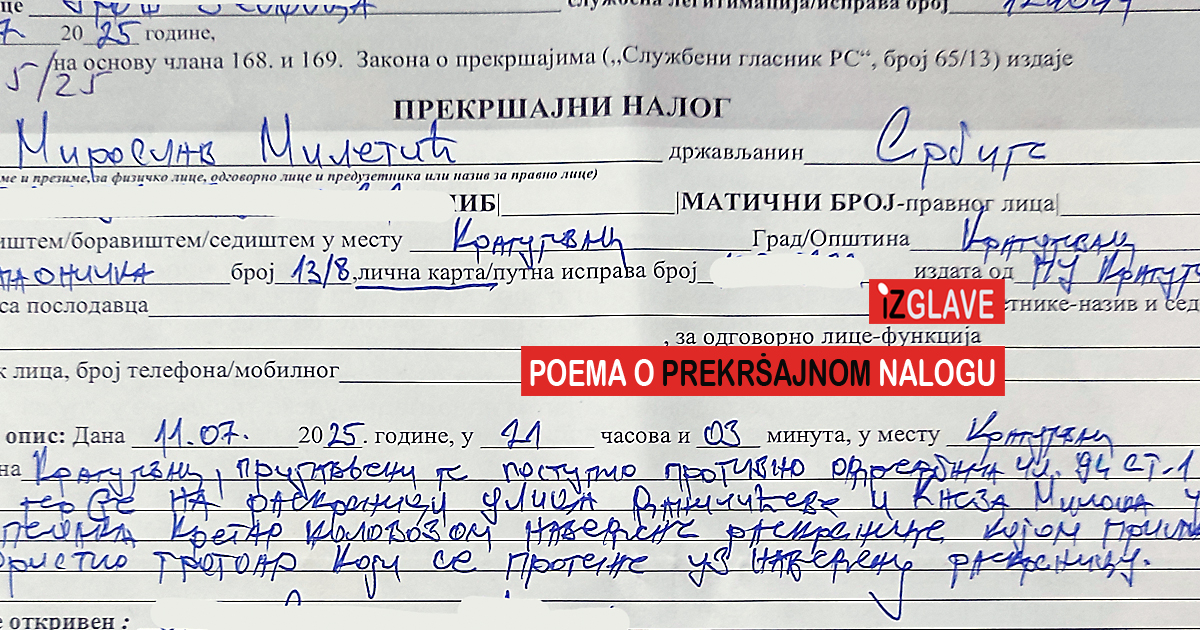 службена легитимација/исправа број
2025 године,
5/25 на основу члана 168. и 169. Закона о прекршајима („Службени гласник РС“, број 65/13) издаје
ПРЕКРШАЈНИ НАЛОГ
Мирослав Милетић држављанин Србије
ме и презиме, за физичко лице, одговорно лице и предузетника или назив за правно лице)
ЈИБ| |МАТИЧНИ БРОЈ-правног лица|
иштем/боравиштем/седиштем у месту Крагујевац Град/Општина Крагујевац
број 13/8, лична карта/путна исправа број издата од ПУ
са послодавца етнике-назив и сед
iZGLAVE
, за одговорно лице-функција
к лица, број телефона/мобилног
POEMA O PREKRŠAJNOM NALOGU
опис: Дана 11.07. 2025. године, у 21 часова и 03 минута, у месту Крагујевац
на Крагујевац, пруптављени је поступио противно одредбама чл. 94 ст.1
тер се на раскрсници улица Даничићеве и Кнеза Милоша
пешака кретао коловозом наведене раскрснице, којом приликом
ористио тротоар који се протеже уз наведену раскрсницу.
е откривен :